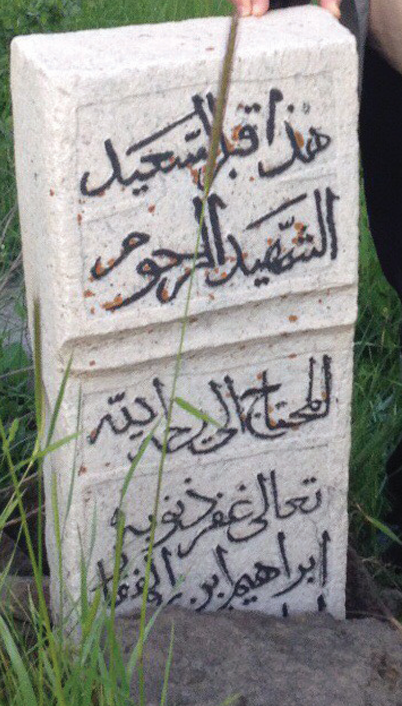 هذا قبر السعيد
الشّهيد المرحوم
المحتاج الی رحمة اللّه
تعالی غفر ذنوبه
ابراهیم ابن